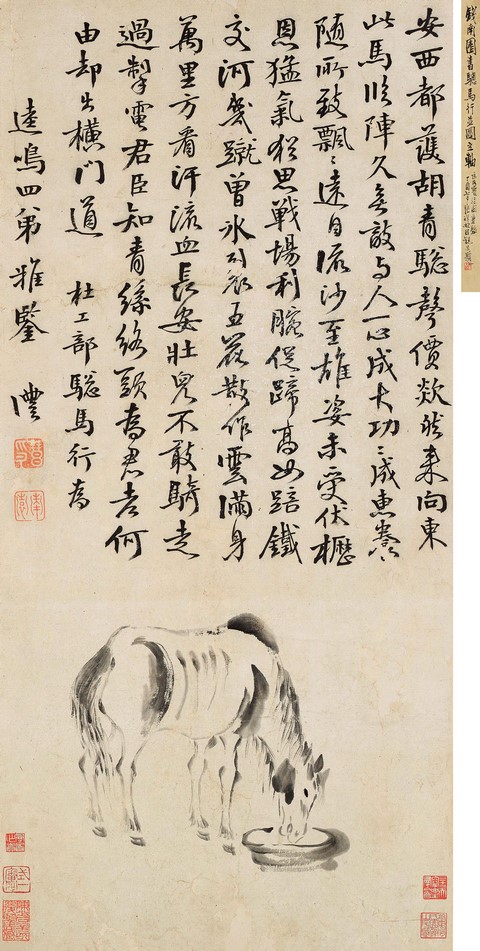 錢南園書驄馬行並圖立軸
安西都護胡青驄聲價欻然来向東
此馬臨陣久無敵与人一心成大功〻成惠養
随所致飄〻遠自流沙至雄姿未受伏櫪
恩猛氣猶思戰場利腕促蹄高如踣鐵
交河幾蹴曾冰裂五花散作雲滿身
萬里方看汗流血長安壯兒不敢騎走
過掣電君臣知青絲絡頭為君老何
由却出橫門道 杜工部驄馬行為
逵鳴四弟雅鑒 灃